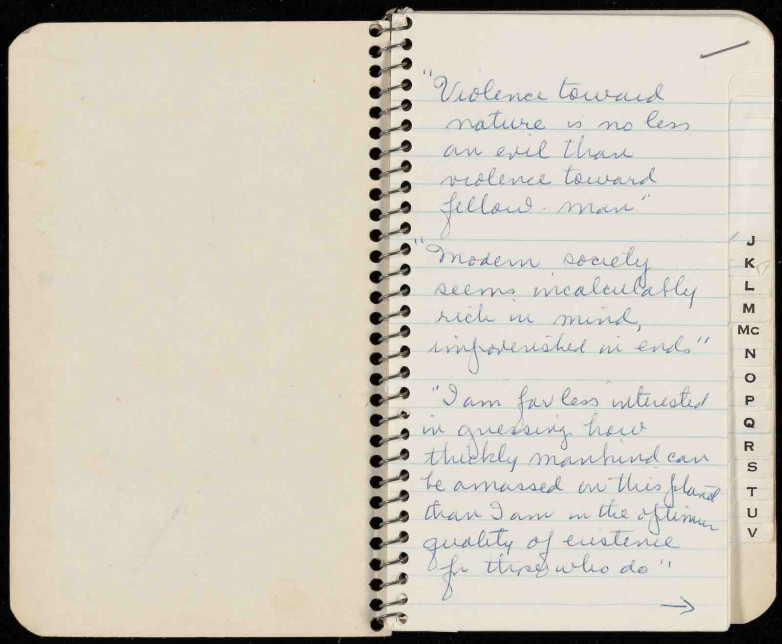 "Violence toward
nature is no less
an evil than
violence toward
fellow-man"
"Modern society
seems incalculably
rich in mind,
impoverished in ends"
"I am far less interested
in guessing how
thickly mankind can
be amassed on this planet
than I am in the optimum
quality of existence
for those who do"
→
J
K
L
M
Mc
N
O
P
Q
R
S
T
U
V